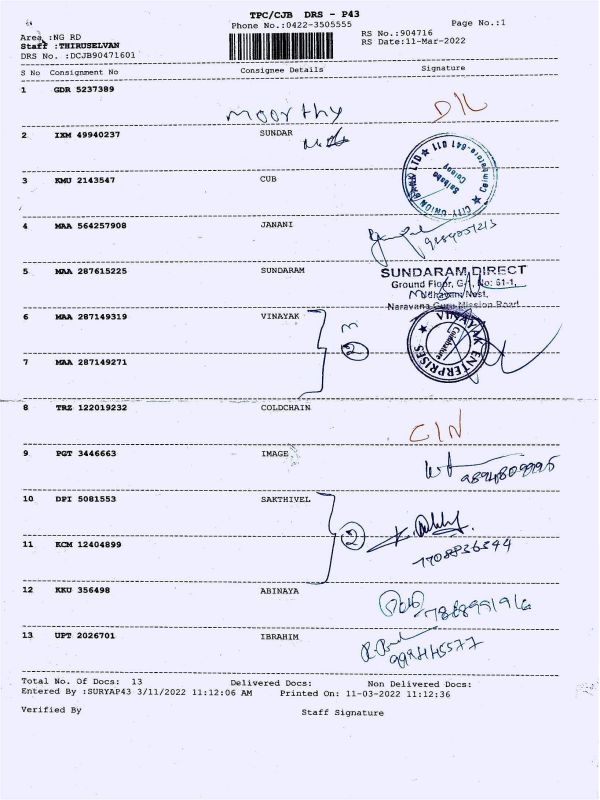 TPC/CJB DRS - P43
Phone No.:0422-3505555
Page No.:1
Area :NG RD
RS No.:904716
Staff :THIRUSELVAN
RS Date:11-Mar-2022
DRS No. :DCJB90471601
S No Consignment No Consignee Details Signature
1 GDR 5237389
moorthy D/L
2 IXM 49940237 SUNDAR
CITY UNION BANK LTD ★ Coimbatore-641 011 ★
Saibaba
Colony
3 KMU 2143547 CUB
4 MAA 564257908 JANANI
5 MAA 287615225 SUNDARAM
SUNDARAM DIRECT
Ground Floor, G-1, No: 61-1,
Nest,
Narayana Guru Mission Road
6 MAA 287149319 VINAYAK
2
VINAYAK ENTERPRISES ★
Coimbatore
7 MAA 287149271
8 TRZ 122019232 COLDCHAIN
C/N
9 PGT 3446663 IMAGE
10 DPI 5081553 SAKTHIVEL
2
11 KCM 12404899
7708836344
12 KKU 356498 ABINAYA
13 UPT 2026701 IBRAHIM
Total No. Of Docs: 13 Delivered Docs: Non Delivered Docs:
Entered By :SURYAP43 3/11/2022 11:12:06 AM Printed On: 11-03-2022 11:12:36
Verified By Staff Signature